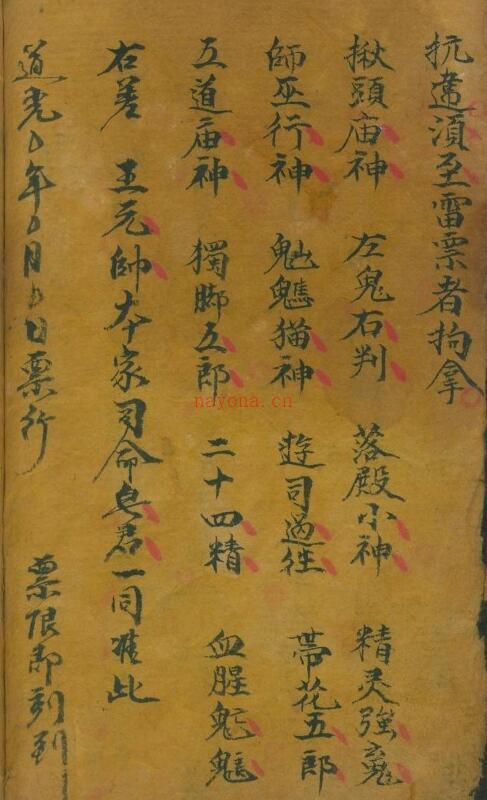 抗違須至雷票者拘拿
揪頭庙神 左鬼右判 落殿小神 精灵強鬼
師巫行神 魈猫神 遊司過往 帶花五郎
五道庙神 獨脚五郎 二十四精 血腥
右差 王元帥 本家司命皂君一同准此
道光 年 月 日票行 票限即到
nayona.cn